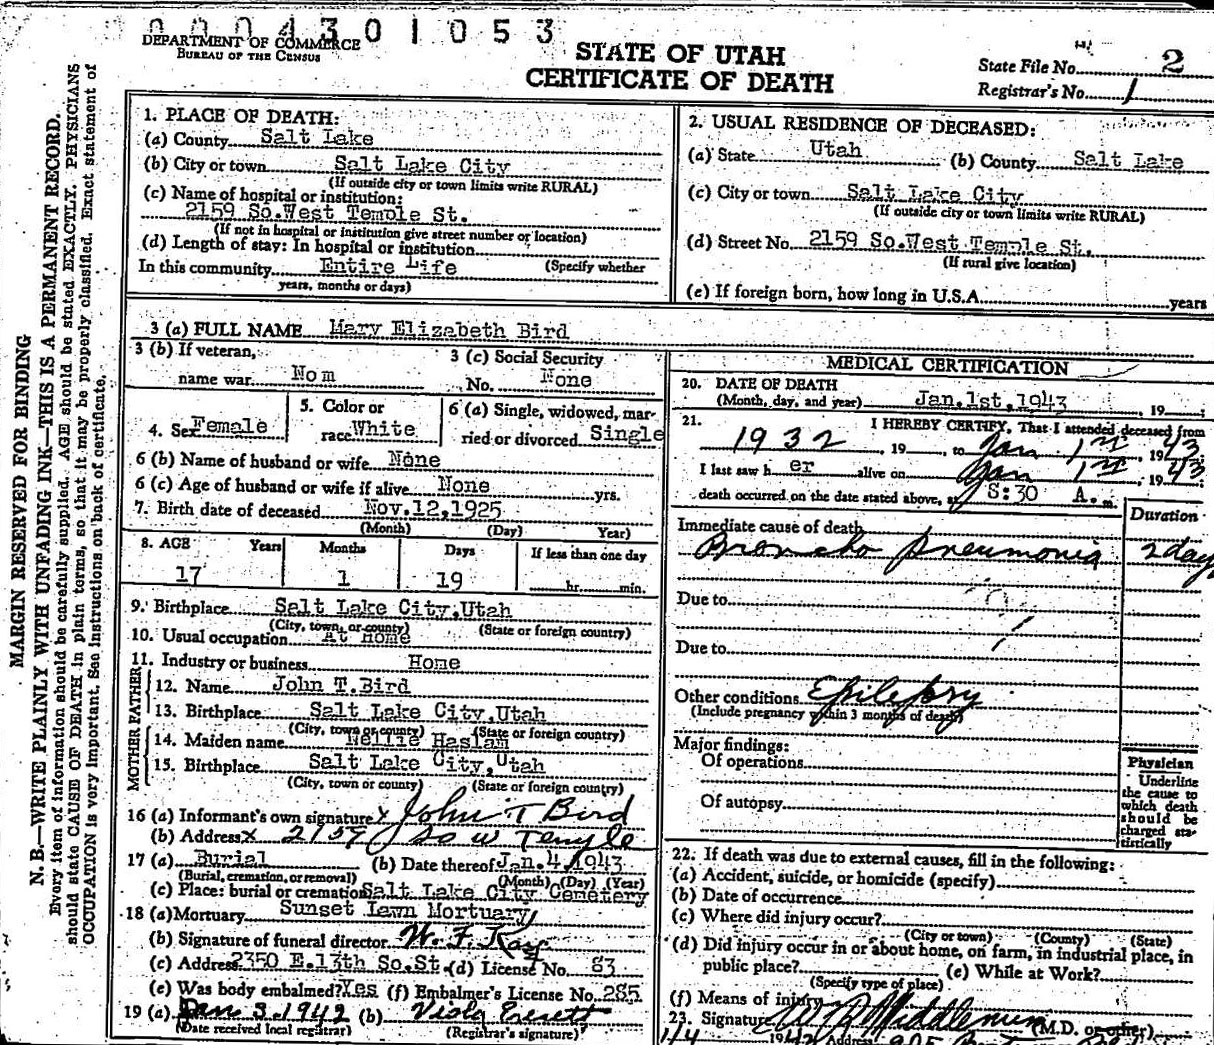 0004301053
DEPARTMENT OF COMMERCE
BUREAU OF THE CENSUS
STATE OF UTAH
CERTIFICATE OF DEATH
State File No. 2
Registrar's No. 1
MARGIN RESERVED FOR BINDING
N. B.—WRITE PLAINLY WITH UNFADING INK—THIS IS A PERMANENT RECORD.
Every item of information should be carefully supplied. AGE should be stated EXACTLY. PHYSICIANS
should state CAUSE OF DEATH in plain terms, so that it may be properly classified. Exact statement of
OCCUPATION is very important. See instructions on back of certificate.
1. PLACE OF DEATH:
(a) County Salt Lake
(b) City or town Salt Lake City
(If outside city or town limits write RURAL)
(c) Name of hospital or institution:
2159 So.West Temple St.
(If not in hospital or institution give street number or location)
(d) Length of stay: In hospital or institution
In this community Entire Life (Specify whether
years, months or days)
2. USUAL RESIDENCE OF DECEASED:
(a) State Utah (b) County Salt Lake
(c) City or town Salt Lake City
(If outside city or town limits write RURAL)
(d) Street No. 2159 So.West Temple St.
(If rural give location)
(e) If foreign born, how long in U.S.A. years
3 (a) FULL NAME Mary Elizabeth Bird
3 (b) If veteran,
name war Nom
3 (c) Social Security
No. None
4. Sex Female
5. Color or
race White
6 (a) Single, widowed, mar-
ried or divorced Single
6 (b) Name of husband or wife None
6 (c) Age of husband or wife if alive None yrs.
7. Birth date of deceased Nov.12,1925
(Month) (Day) Year)
8. AGE Years Months Days If less than one day
17 1 19 hr. min.
9. Birthplace Salt Lake City,Utah
(City, town, or county) (State or foreign country)
10. Usual occupation At Home
11. Industry or business Home
FATHER
12. Name John T.Bird
13. Birthplace Salt Lake City,Utah
(City, town or county) (State or foreign country)
MOTHER
14. Maiden name Nellie Haslam
15. Birthplace Salt Lake City,Utah
(City, town or county) (State or foreign country)
16 (a) Informant's own signature x John T Bird
(b) Address x 2159 So W Temple
17 (a) Burial (b) Date thereof Jan.4,1943
(Burial, cremation, or removal) (Month) (Day) (Year)
(c) Place: burial or cremation Salt Lake City Cemetery
18 (a) Mortuary Sunset Lawn Mortuary
(b) Signature of funeral director W. F.
(c) Address 2350 E.13th So.St. (d) License No. 83
(e) Was body embalmed? Yes (f) Embalmer's License No. 285
19 (a) Jan 3.1942 (b) Viola Everett
(Date received local registrar) (Registrar's signature)
MEDICAL CERTIFICATION
20. DATE OF DEATH
(Month, day, and year) Jan.1st,1943, 19
21. I HEREBY CERTIFY, That I attended deceased from
1932, 19, to Jan 1st, 1943
I last saw h er alive on Jan 1st, 1943
death occurred on the date stated above, at 8:30 A. m.
Duration
Immediate cause of death
Broncho pneumonia 2 day
Due to
Due to
Other conditions Epilepsy
(Include pregnancy within 3 months of death)
Major findings:
Of operations
Of autopsy
Physician
Underline
the cause to
which death
should be
charged sta-
tistically
22. If death was due to external causes, fill in the following:
(a) Accident, suicide, or homicide (specify)
(b) Date of occurrence
(c) Where did injury occur?
(City or town) (County) (State)
(d) Did injury occur in or about home, on farm, in industrial place, in
public place? (e) While at Work?
(Specify type of place)
(f) Means of injury
23. Signature Middlemiss (M.D. or other)
1/4 1942 Address 905